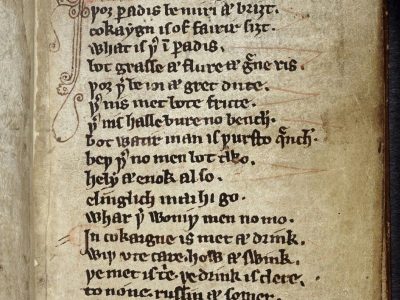 þoȝ ꝑadis be miri ⁊ briȝt.
cokaygn is of fairir siȝt.
what is þ͛ i ꝑadis.
bot grasse ⁊ flure ⁊ g͛ne ris.
þoȝ þ͛ be ioi ⁊ gret dute.
þ͛ nis met bote frute.
þ͛ nis halle bure no bench.
bot watir man is þursto q͛nch.
beþ þ͛ no men bot two.
hely ⁊ enok also.
elinglich mai hi go.
whar þ͛ woniþ men no mo.
In cokaigne is met ⁊ drink.
wiþ vte care. how ⁊ swink.
þe met is t͛e. þe drink is clere.
to none. russin ⁊ sopper.